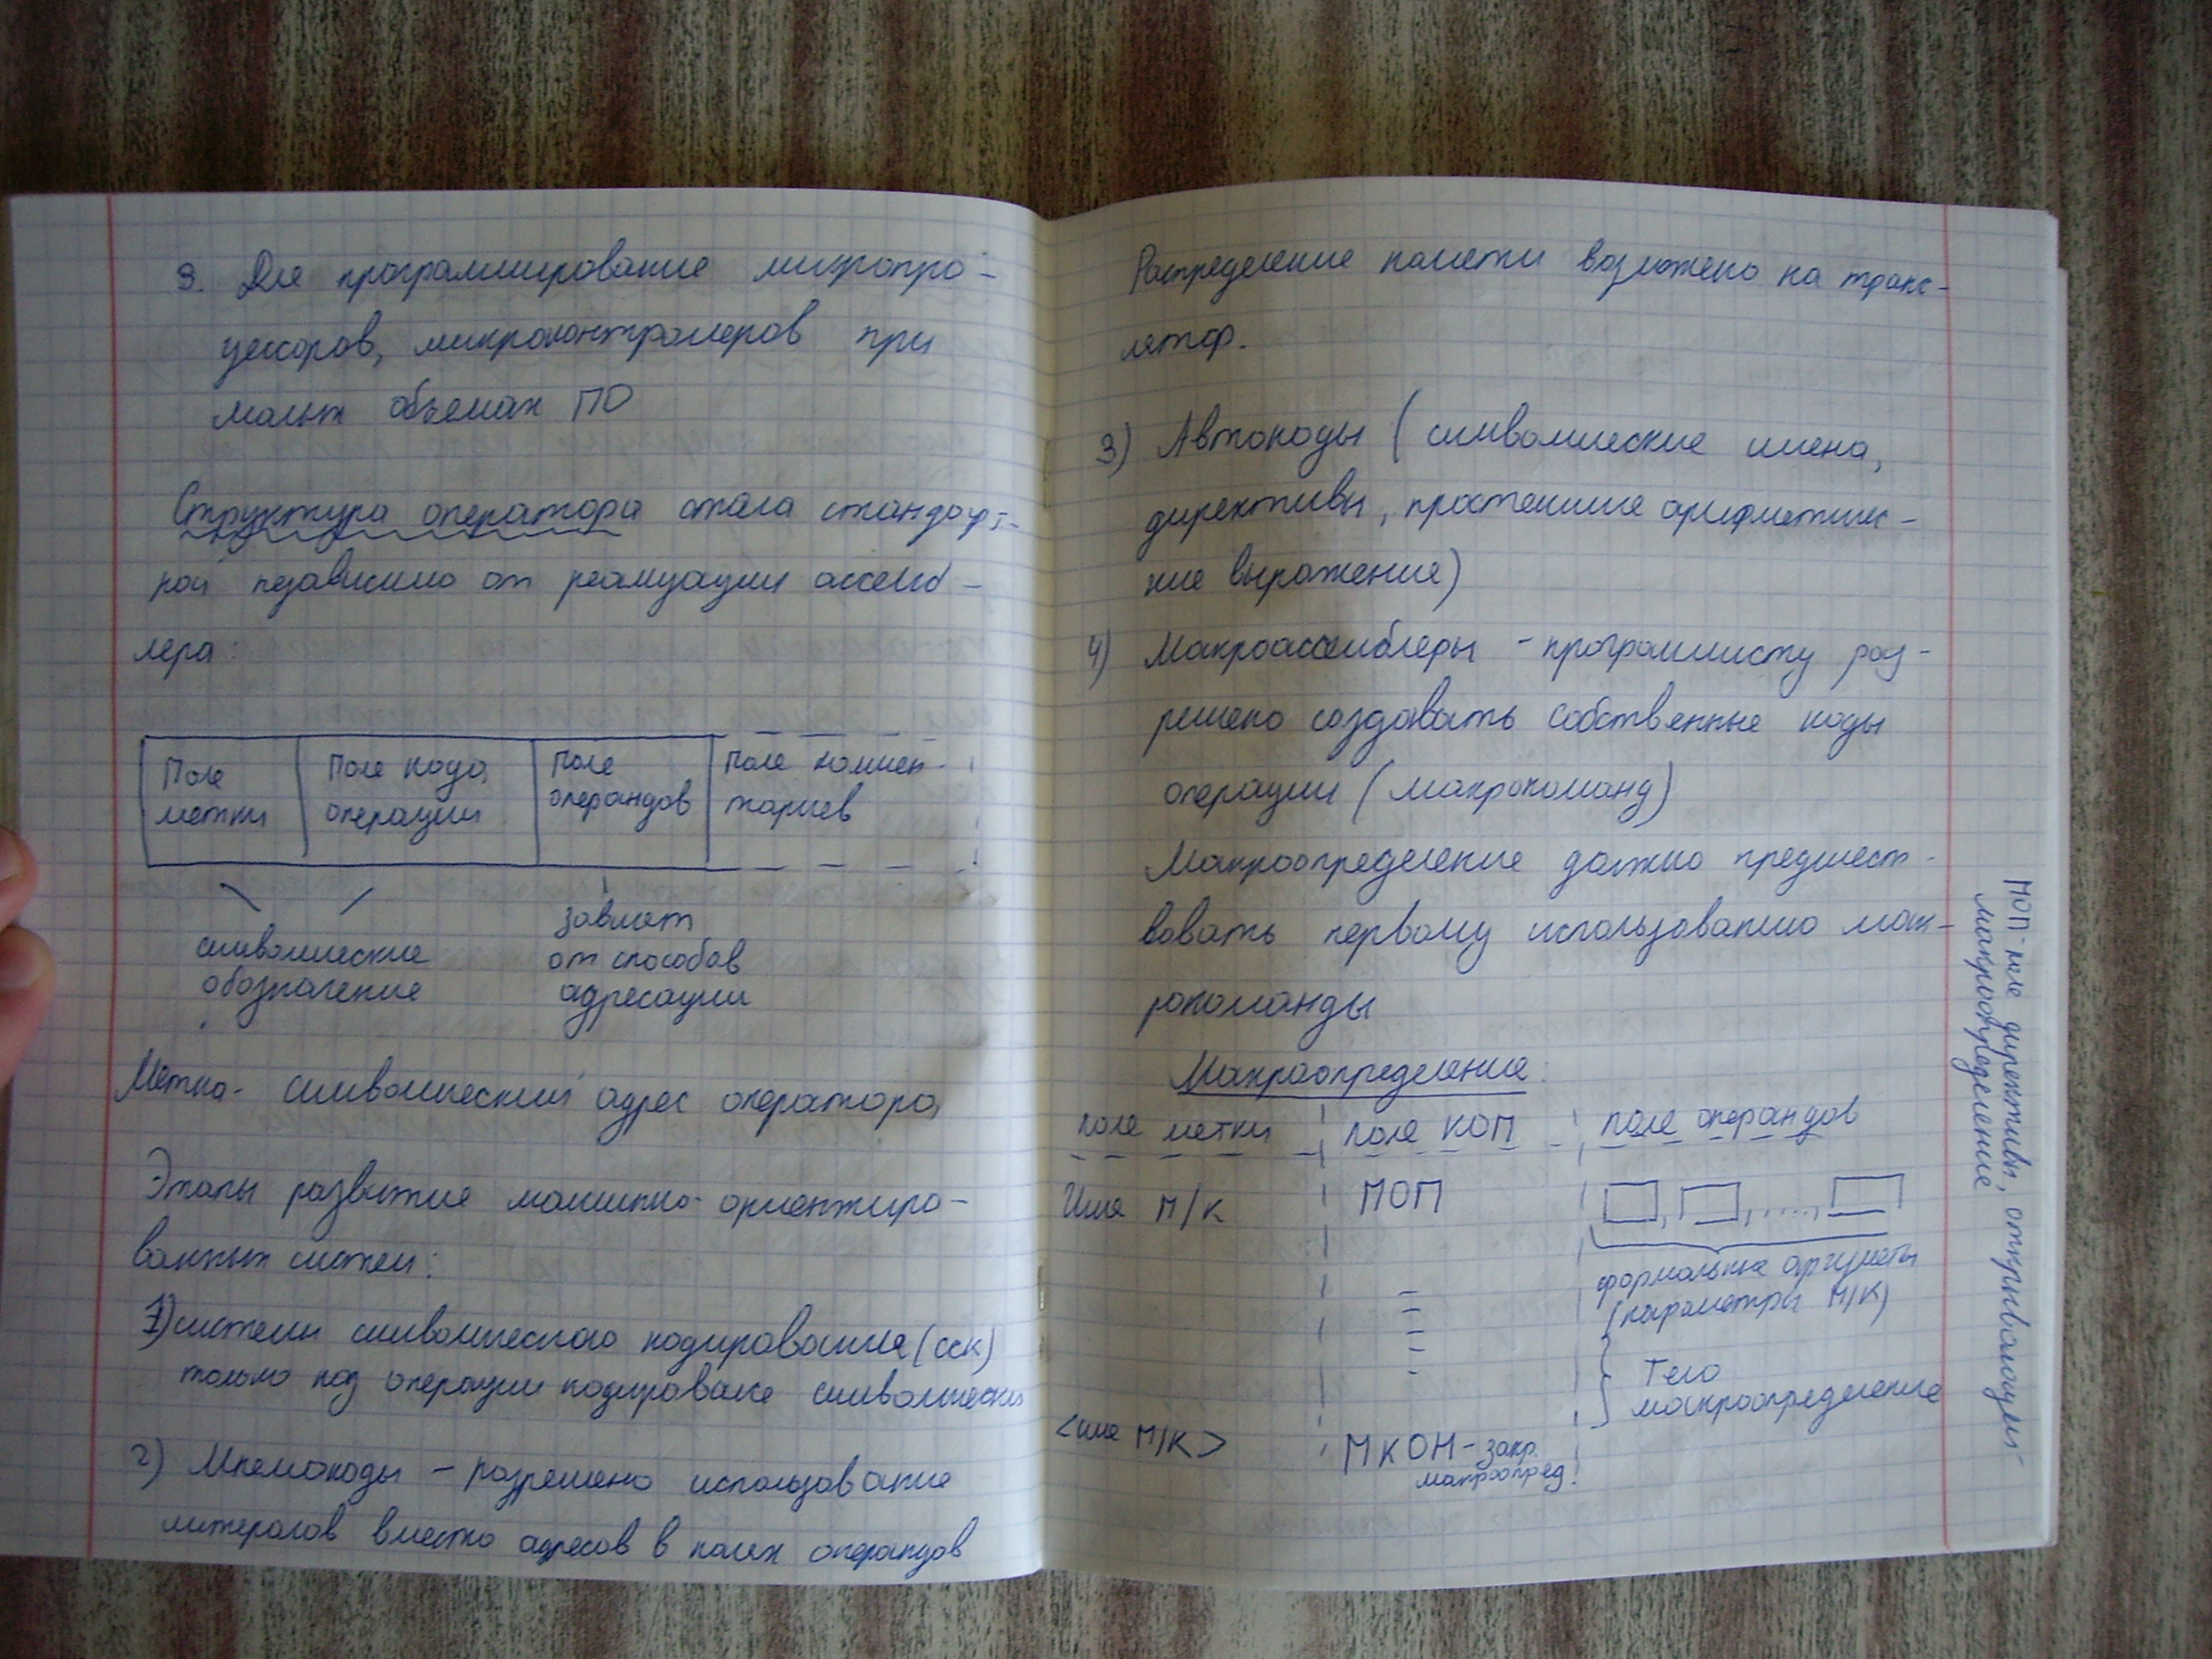 3. Для программирование микропро-
цессоров, микроконтролеров при
малых объемах ПО
Структура оператора стала стандарт-
ной независимо от реализации ассемб-
лера:
Поле метки
Поле кода операции
Поле операндов
Поле коммен-
тариев
символические
обозначение
зависят
от способов
адресации
Метка - символический адрес оператора
Этапы развитие машинно-ориентиро-
ванных систем:
1) системы символического кодирования (ССК)
только код операции кодировался символически
2) Мнемокоды - разрешено использование
литералов вместо адресов в полях операндов
Распределение памяти возложено на транс-
лятор.
3) Автокоды (символические имена,
директивы, простейшие арифметичес-
кие выражение)
4) Макроассемблеры - программисту раз-
решено создавать собственные коды
операции (макрокоманд)
Макроопределение должно предшест-
вовать первому использованию мак-
рокоманды
Макроопределение:
поле метки поле КОП поле операндов
Имя М/К МОП , , ....,
формальные аргументы
(параметры М/К)
Тело
макроопределение
<имя М/К> МКОН - закр.
макроопред.
МОП - поле директивы, открывающей
макроопределение